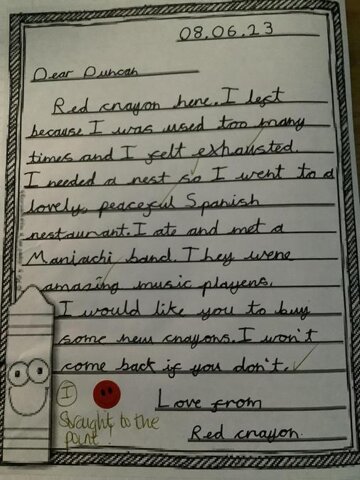 08.06.23
Dear Duncan
Red crayon here. I left
because I was used too many
times and I felt exhausted.
I needed a rest so I went to a
lovely, peaceful Spanish
restaurant. I ate and met a
Mariachi band. They were
amazing music players.
I would like you to buy
some new crayons. I won't
come back if you don't.
I
Straught to the
point!
Love from
Red crayon.